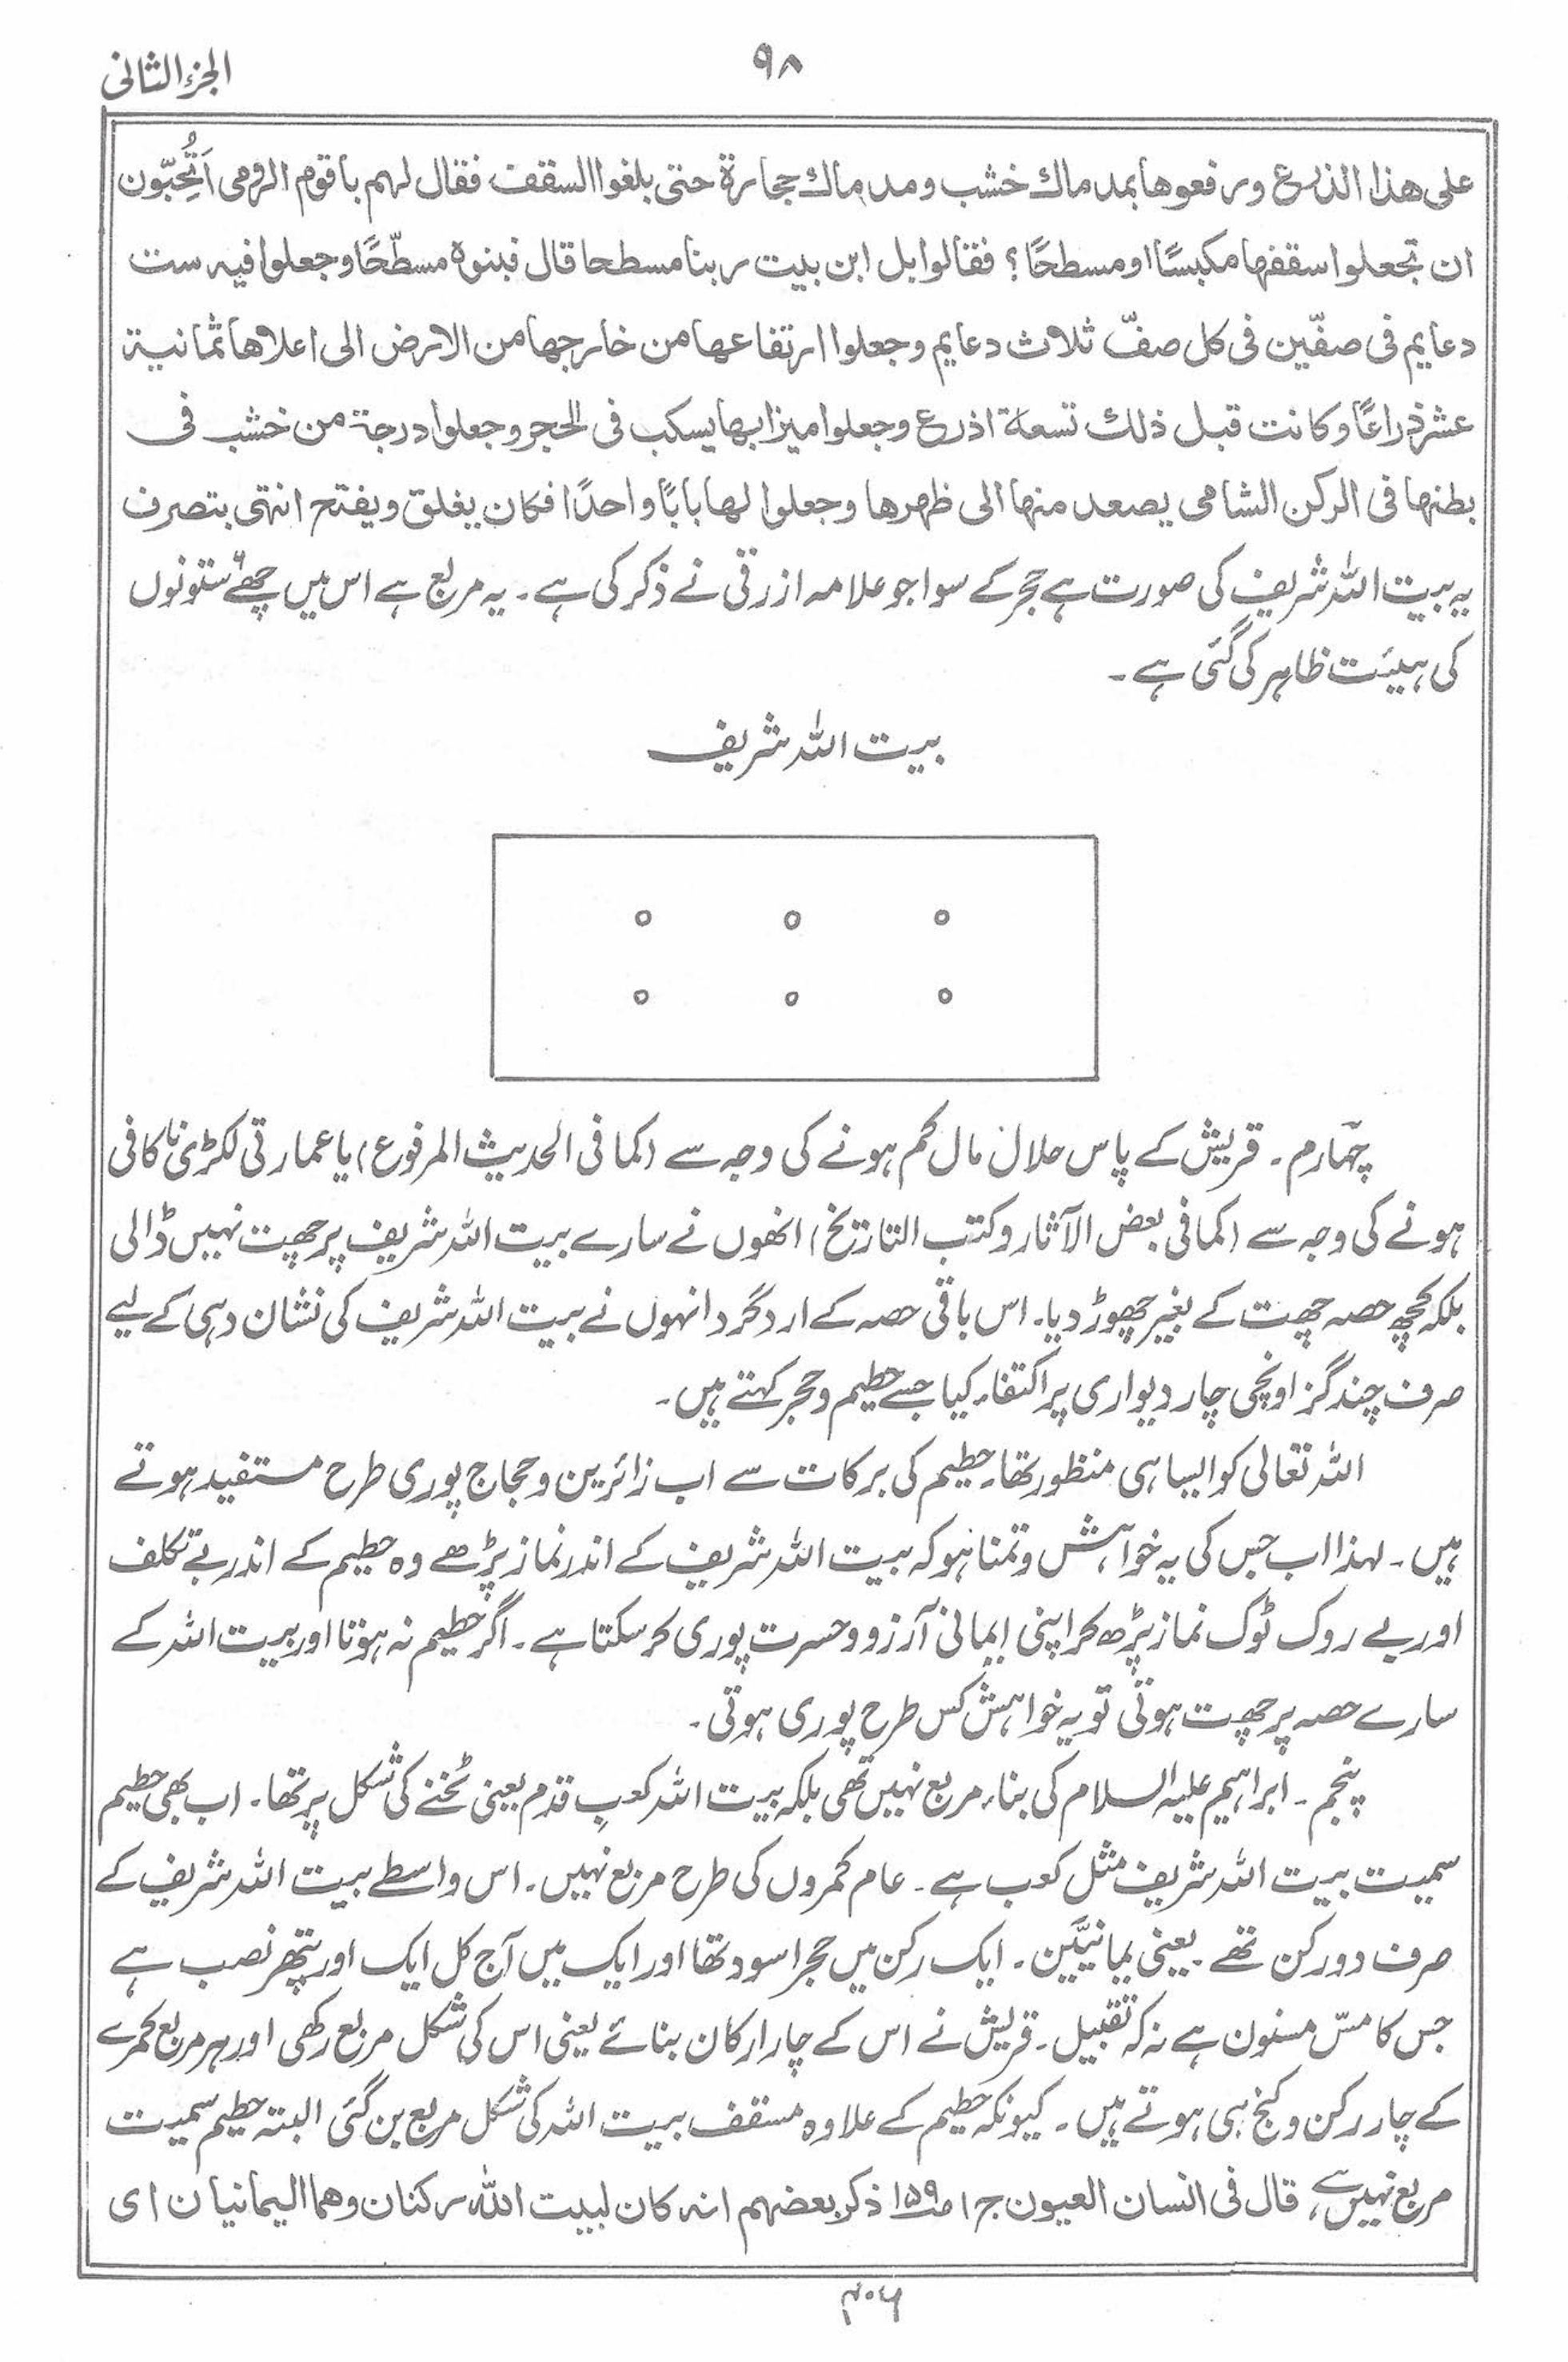 الجزء الثانی
۹۸
علی ھذا الذرع ورفعوھا بمدماك خشب ومدماك حجارة حتی بلغوا السقف فقال لہم باقوم الرومی اَتُحِبّون
ان تجعلوا سقفہا مکبسًا او مسطحًا؟ فقالوا بل ابن بیت ربنا مسطحا قال فبنوہ مسطّحًا وجعلوا فیہ ست
دعایم فی صفّین فی کل صفّ ثلاث دعایم وجعلوا ارتفاعہا من خارجہا من الارض الی اعلاھا ثمانیۃ
عشر ذراعًا وکانت قبل ذلك تسعۃ اذرع وجعلوا میزابہا یسکب فی الحجر وجعلوا درجۃ من خشب فی
بطنہا فی الرکن الشامی یصعد منہا الی ظہرھا وجعلوا لہا بابًا واحدًا فکان یغلق ویفتح انتہی بتصرف
یہ بیت اللہ شریف کی صورت ہے حجر کے سوا جو علامہ ازرقی نے ذکر کی ہے۔ یہ مربع ہے اس میں چھۓ ستونوں
کی ہیئت ظاہر کی گئی ہے۔
بیت اللہ شریف
چہارم۔ قریش کے پاس حلال مال کم ہونے کی وجہ سے (کما فی الحدیث المرفوع) یا عمارتی لکڑی ناکافی
ہونے کی وجہ سے (کما فی بعض الآثار وکتب التاریخ) انھوں نے سارے بیت اللہ شریف پر چھت نہیں ڈالی
بلکہ کچھ حصہ چھت کے بغیر چھوڑ دیا۔ اس باقی حصہ کے اردگرد انہوں نے بیت اللہ شریف کی نشان دہی کے لیے
صرف چند گز اونچی چار دیواری پر اکتفاء کیا جسے حطیم و حجر کہتے ہیں۔
اللہ تعالی کو ایسا ہی منظور تھا۔ حطیم کی برکات سے اب زائرین و حجاج پوری طرح مستفید ہوتے
ہیں۔ لہذا اب جس کی یہ خواہش و تمنا ہو کہ بیت اللہ شریف کے اندر نماز پڑھے وہ حطیم کے اندر بے تکلف
اور بے روک ٹوک نماز پڑھ کر اپنی ایمانی آرزو و حسرت پوری کر سکتا ہے۔ اگر حطیم نہ ہوتا اور بیت اللہ کے
سارے حصہ پر چھت ہوتی تو یہ خواہش کس طرح پوری ہوتی۔
پنجم۔ ابراہیم علیہ السلام کی بناء مربع نہیں تھی بلکہ بیت اللہ کعبِ قدم یعنی ٹخنے کی شکل پر تھا۔ اب بھی حطیم
سمیت بیت اللہ شریف مثل کعب ہے۔ عام کمروں کی طرح مربع نہیں۔ اس واسطے بیت اللہ شریف کے
صرف دو رکن تھے۔ یعنی یمانیَّین۔ ایک رکن میں حجر اسود تھا اور ایک میں آج کل ایک اور پتھر نصب ہے
جس کا مسّ مسنون ہے نہ کہ تقبیل۔ قریش نے اس کے چار ارکان بنائے یعنی اس کی شکل مربع رکھی اور ہر مربع کمرے
کے چار رکن و کنج ہی ہوتے ہیں۔ کیونکہ حطیم کے علاوہ مسقف بیت اللہ کی شکل مربع بن گئی البتہ حطیم سمیت
مربع نہیں ہے، قال فی انسان العیون ج۱ ص۱۵۹ ذکر بعضہم انہ کان لبیت اللہ رکنان وھما الیمانیان ای